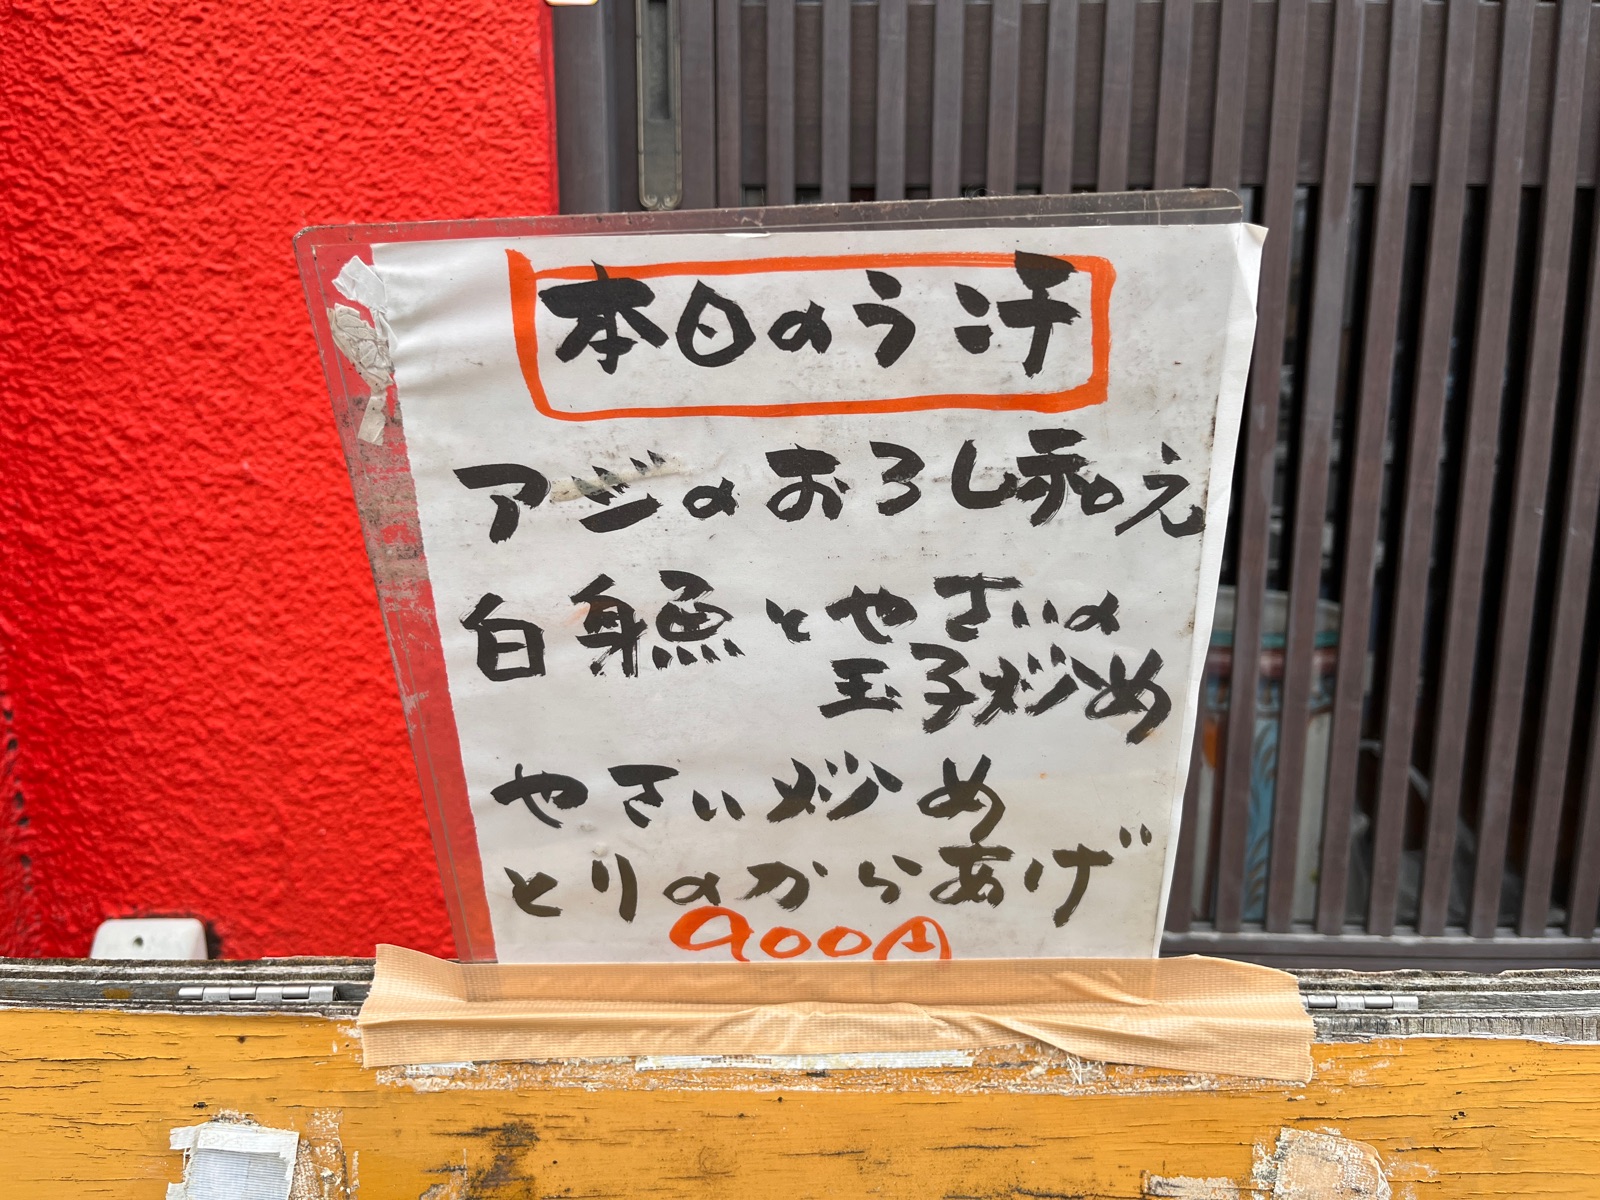 本日のう汁
アジのおろし和え
白身魚とやさいの
玉子炒め
やさい炒め
とりのからあげ
900円